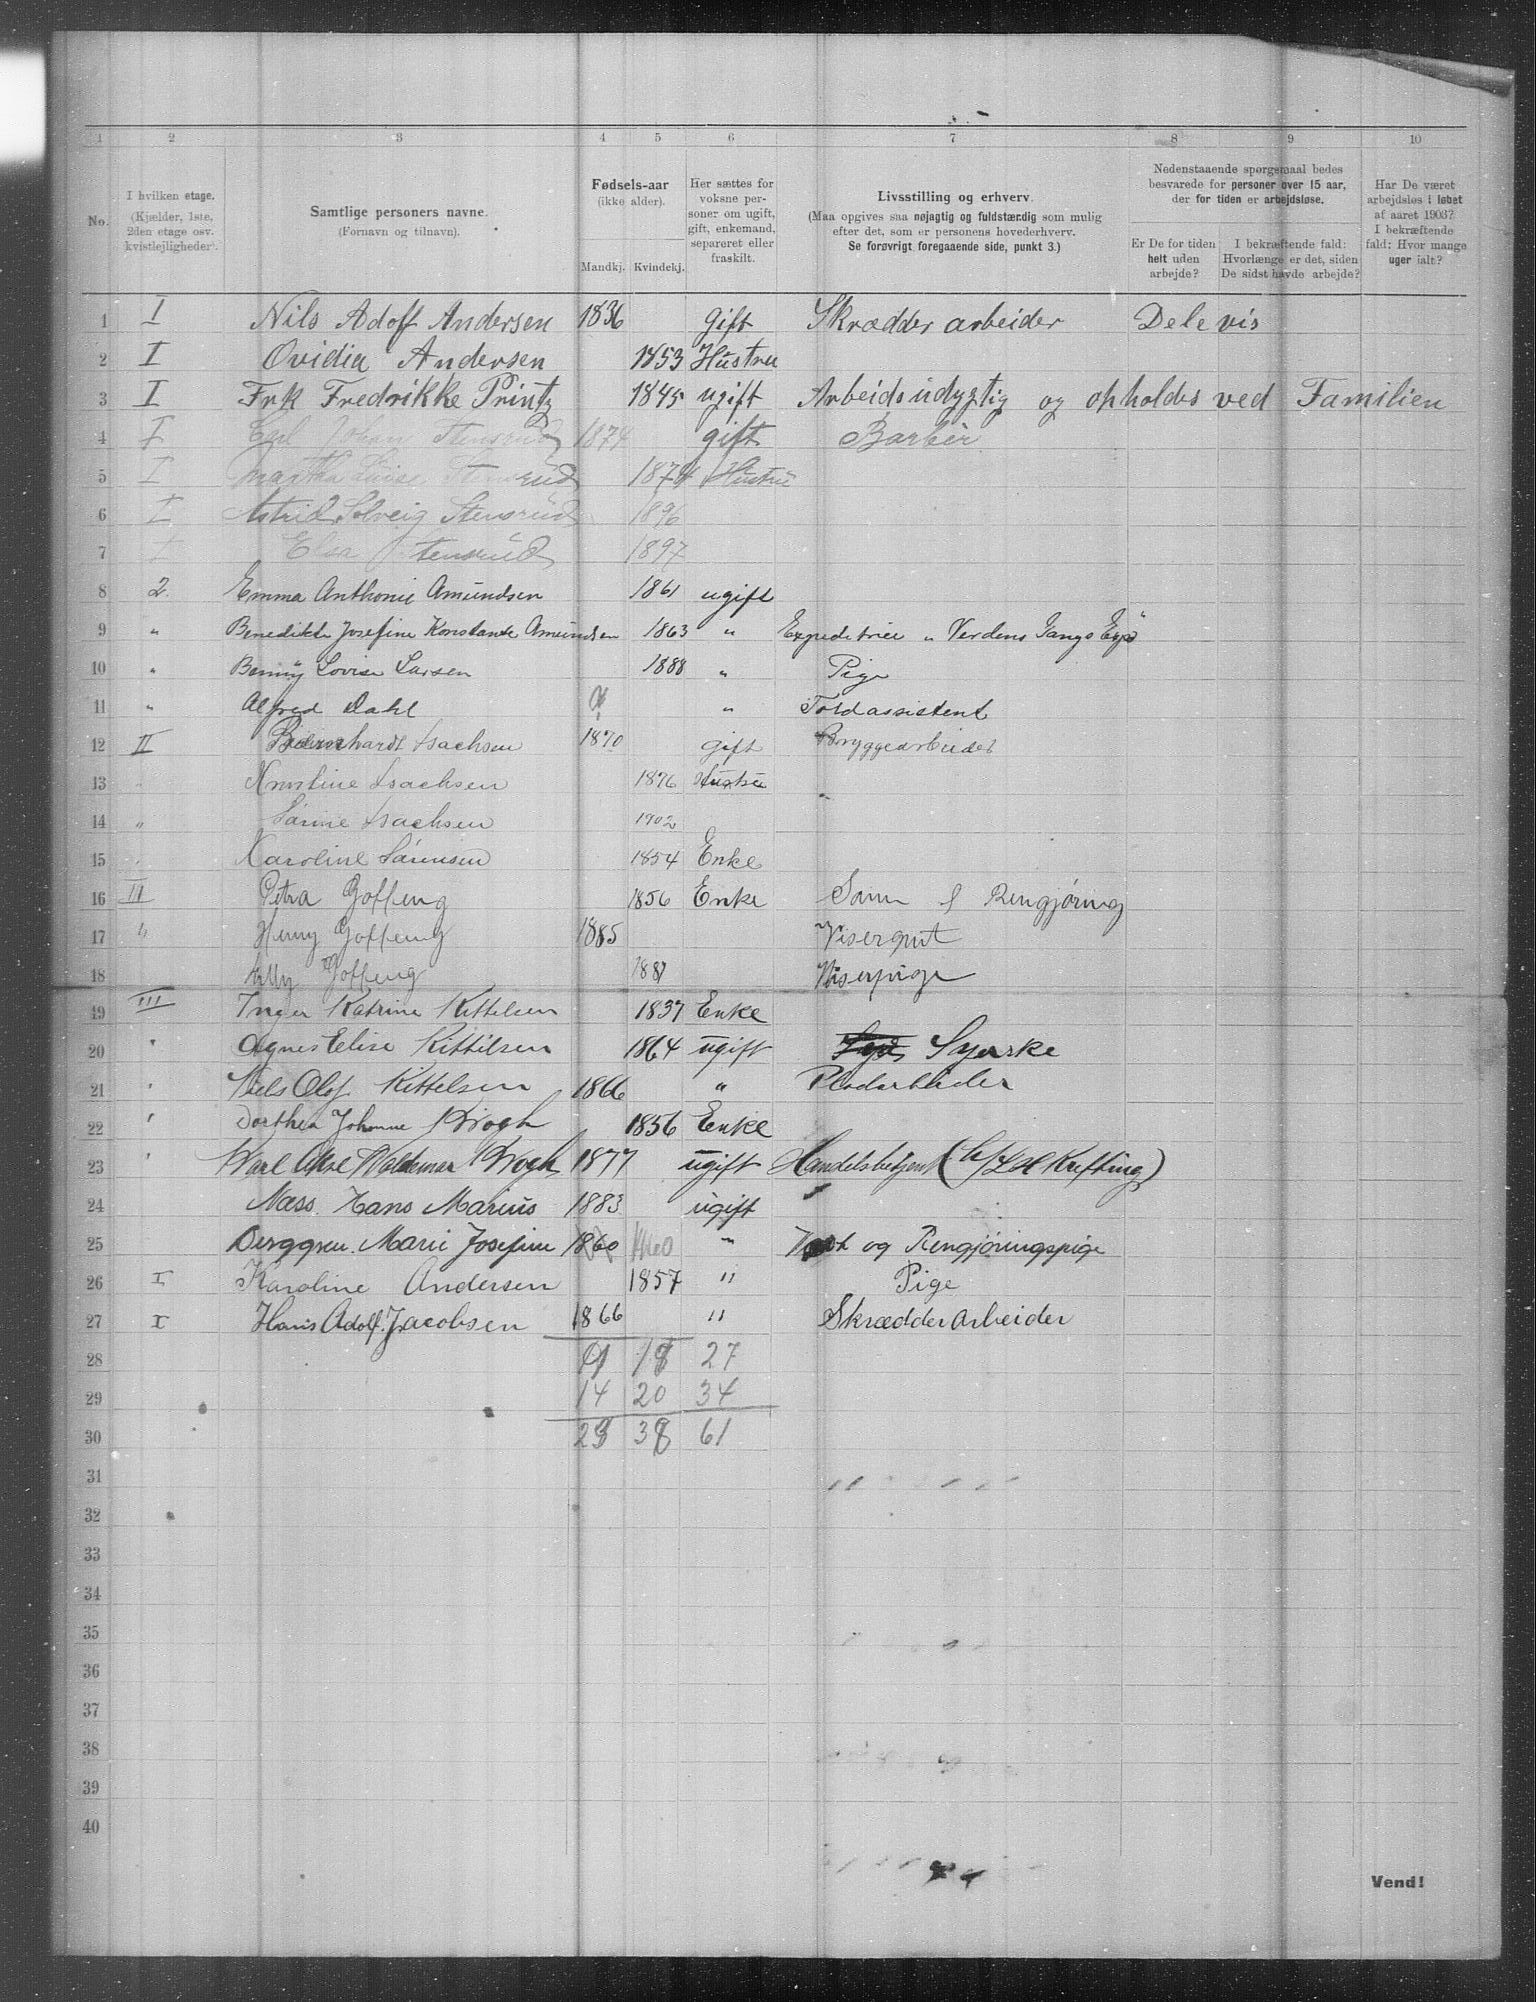 1 2 3 4 5 6 7 8 9 10
No.
I hvilken etage.
(Kjælder, 1ste,
2den etage osv.
kvistlejligheder).
Samtlige personers navne.
(Fornavn og tilnavn).
Fødsels-aar
(ikke alder).
Mandkj. Kvindekj.
Her sættes for
voksne per-
soner om ugift,
gift, enkemand,
separeret eller
fraskilt.
Livsstilling og erhverv.
(Maa opgives saa nøjagtig og fuldstærdig som mulig
efter det, som er personens hovederhverv.
Se forøvrigt foregaaende side, punkt 3.)
Nedenstaaende spørgsmaal bedes
besvarede for personer over 15 aar,
der for tiden er arbejdsløse.
Er De for tiden
helt uden
arbejde?
I bekræftende fald:
Hvorlænge er det, siden
De sidst havde arbejde?
Har De været
arbejdsløs i løbet
af aaret 1903?
I bekræftende
fald: Hvor mange
uger ialt?
1 I Nils Adolf Andersen 1836 gift Skrædder arbeider Delevis
2 I Ovidia Andersen 1853 Hustru
3 I Frk Fredrikke Printz 1845 ugift Arbeidsudygtig og opholdes ved Familien
4 I Johan Stensrud 1874 gift Barbér
5 I Martha Luise Stensrud 1874 Hustru
6 I Astrid Solveig Stensrud 1896
7 I Elsa Stensrud 1897
8 2. Emma Anthonie Amundsen 1861 ugift
9 " Benedikte Josefine Konstance Amundsen 1863 " Expeditrice " Verdens Gangs Exp"
10 " Benny Lovise Larsen 1888 " Pige
11 " Alfred Dahl " Toldassistent
12 II Bernhardt Isachsen 1870 gift Bryggearbeider
13 " Kristine Isachsen 1876 Hustru
14 " Isachsen 1902
15 " Karoline Sørensen 1854 Enke
16 II Petra Goffeng 1856 Enke Søm & Rengjøring
17 " Henry Goffeng 1885 Visergut
18 Goffeng 188 Viserpige
19 III Inger Katrine Kittelsen 1837 Enke
20 " Agnes Elise Kittilsen 1864 ugift Syerske
21 " Niels Olof Kittelsen 1866 "
22 " Dorthea Johanne Krogh 1856 Enke
23 " Karl Aksel Waldemar Krogh 1877 ugift Handelsbetjent (
24 Næss. Hans Marius 1883 ugift
25 Berggren. Marie Josefine 1860 1860 " og Rengjøringspige
26 I Karoline Andersen 1857 " Pige
27 I Hans Adolf. Jacobsen 1866 " Skrædder Arbeider
28 9 18 27
29 14 20 34
30 23 38 61
31
32
33
34
35
36
37
38
39
40
Vend!